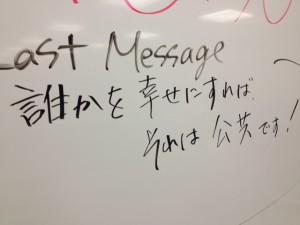 Last Message
誰かを幸せにすれば、
それは公共です!